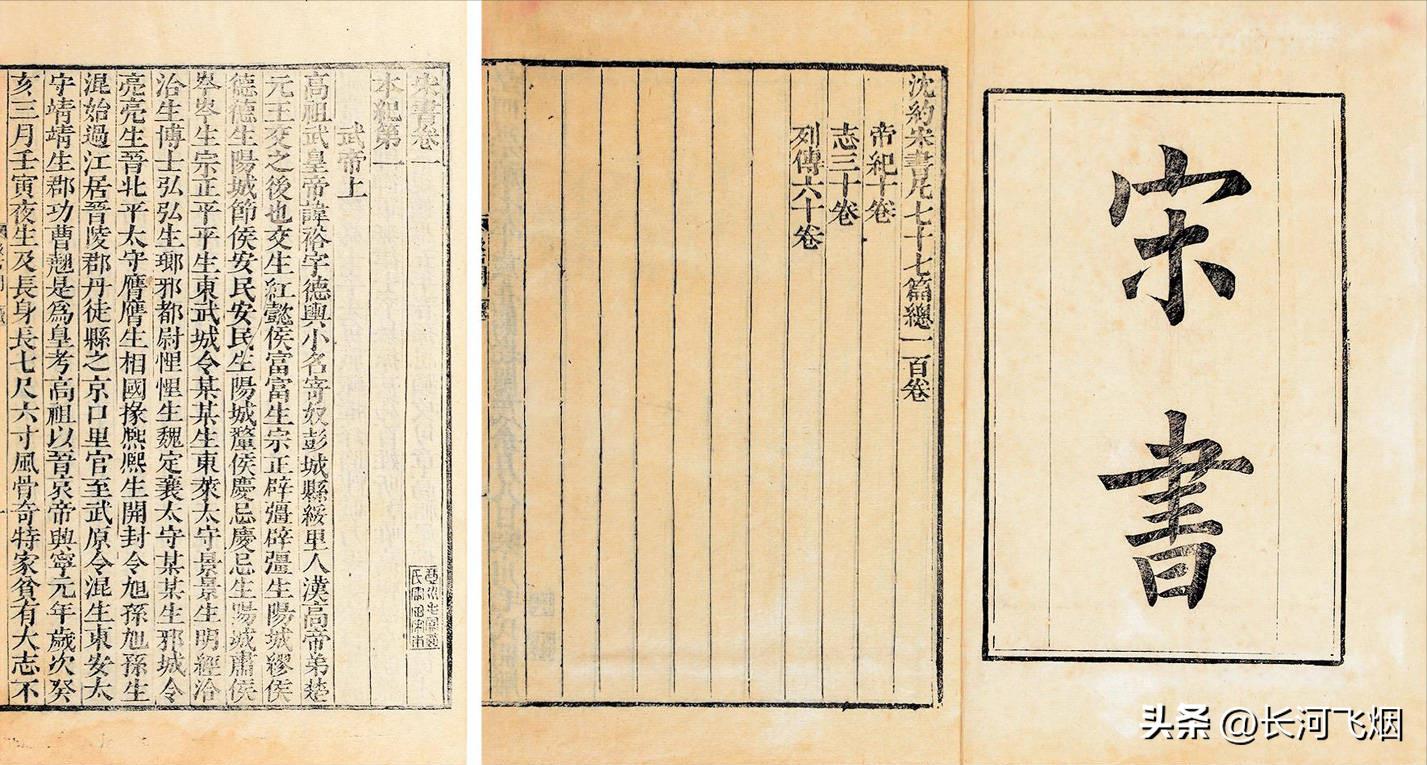 宋書
沈約宋書凡七十七篇總一百卷
帝紀十卷
志三十卷
列傳六十卷
宋書卷一
本紀第一
武帝上
高祖武皇帝諱裕字德輿小名寄奴彭城縣綏里人漢高帝弟楚
元王交之後也交生紅懿侯富富生宗正辟彊辟彊生陽城繆侯
德德生陽城節侯安民安民生陽城釐侯慶忌慶忌生陽城肅侯
岑岑生宗正平平生東武城令某某生東萊太守景景生明經洽
治生博士弘弘生瑯邪都尉悝悝生魏定襄太守某某生邪城令
亮亮生晉北平太守膺膺生相國掾熈熈生開封令旭孫旭孫生
混始過江居晉陵郡丹徒縣之京口里官至武原令混生東安太
守靖靖生郡功曹翹是爲皇考高祖以晉哀帝興寧元年歲次癸
亥三月壬寅夜生及長身長七尺六寸風骨奇特家貧有大志不
头条 @长河飞烟